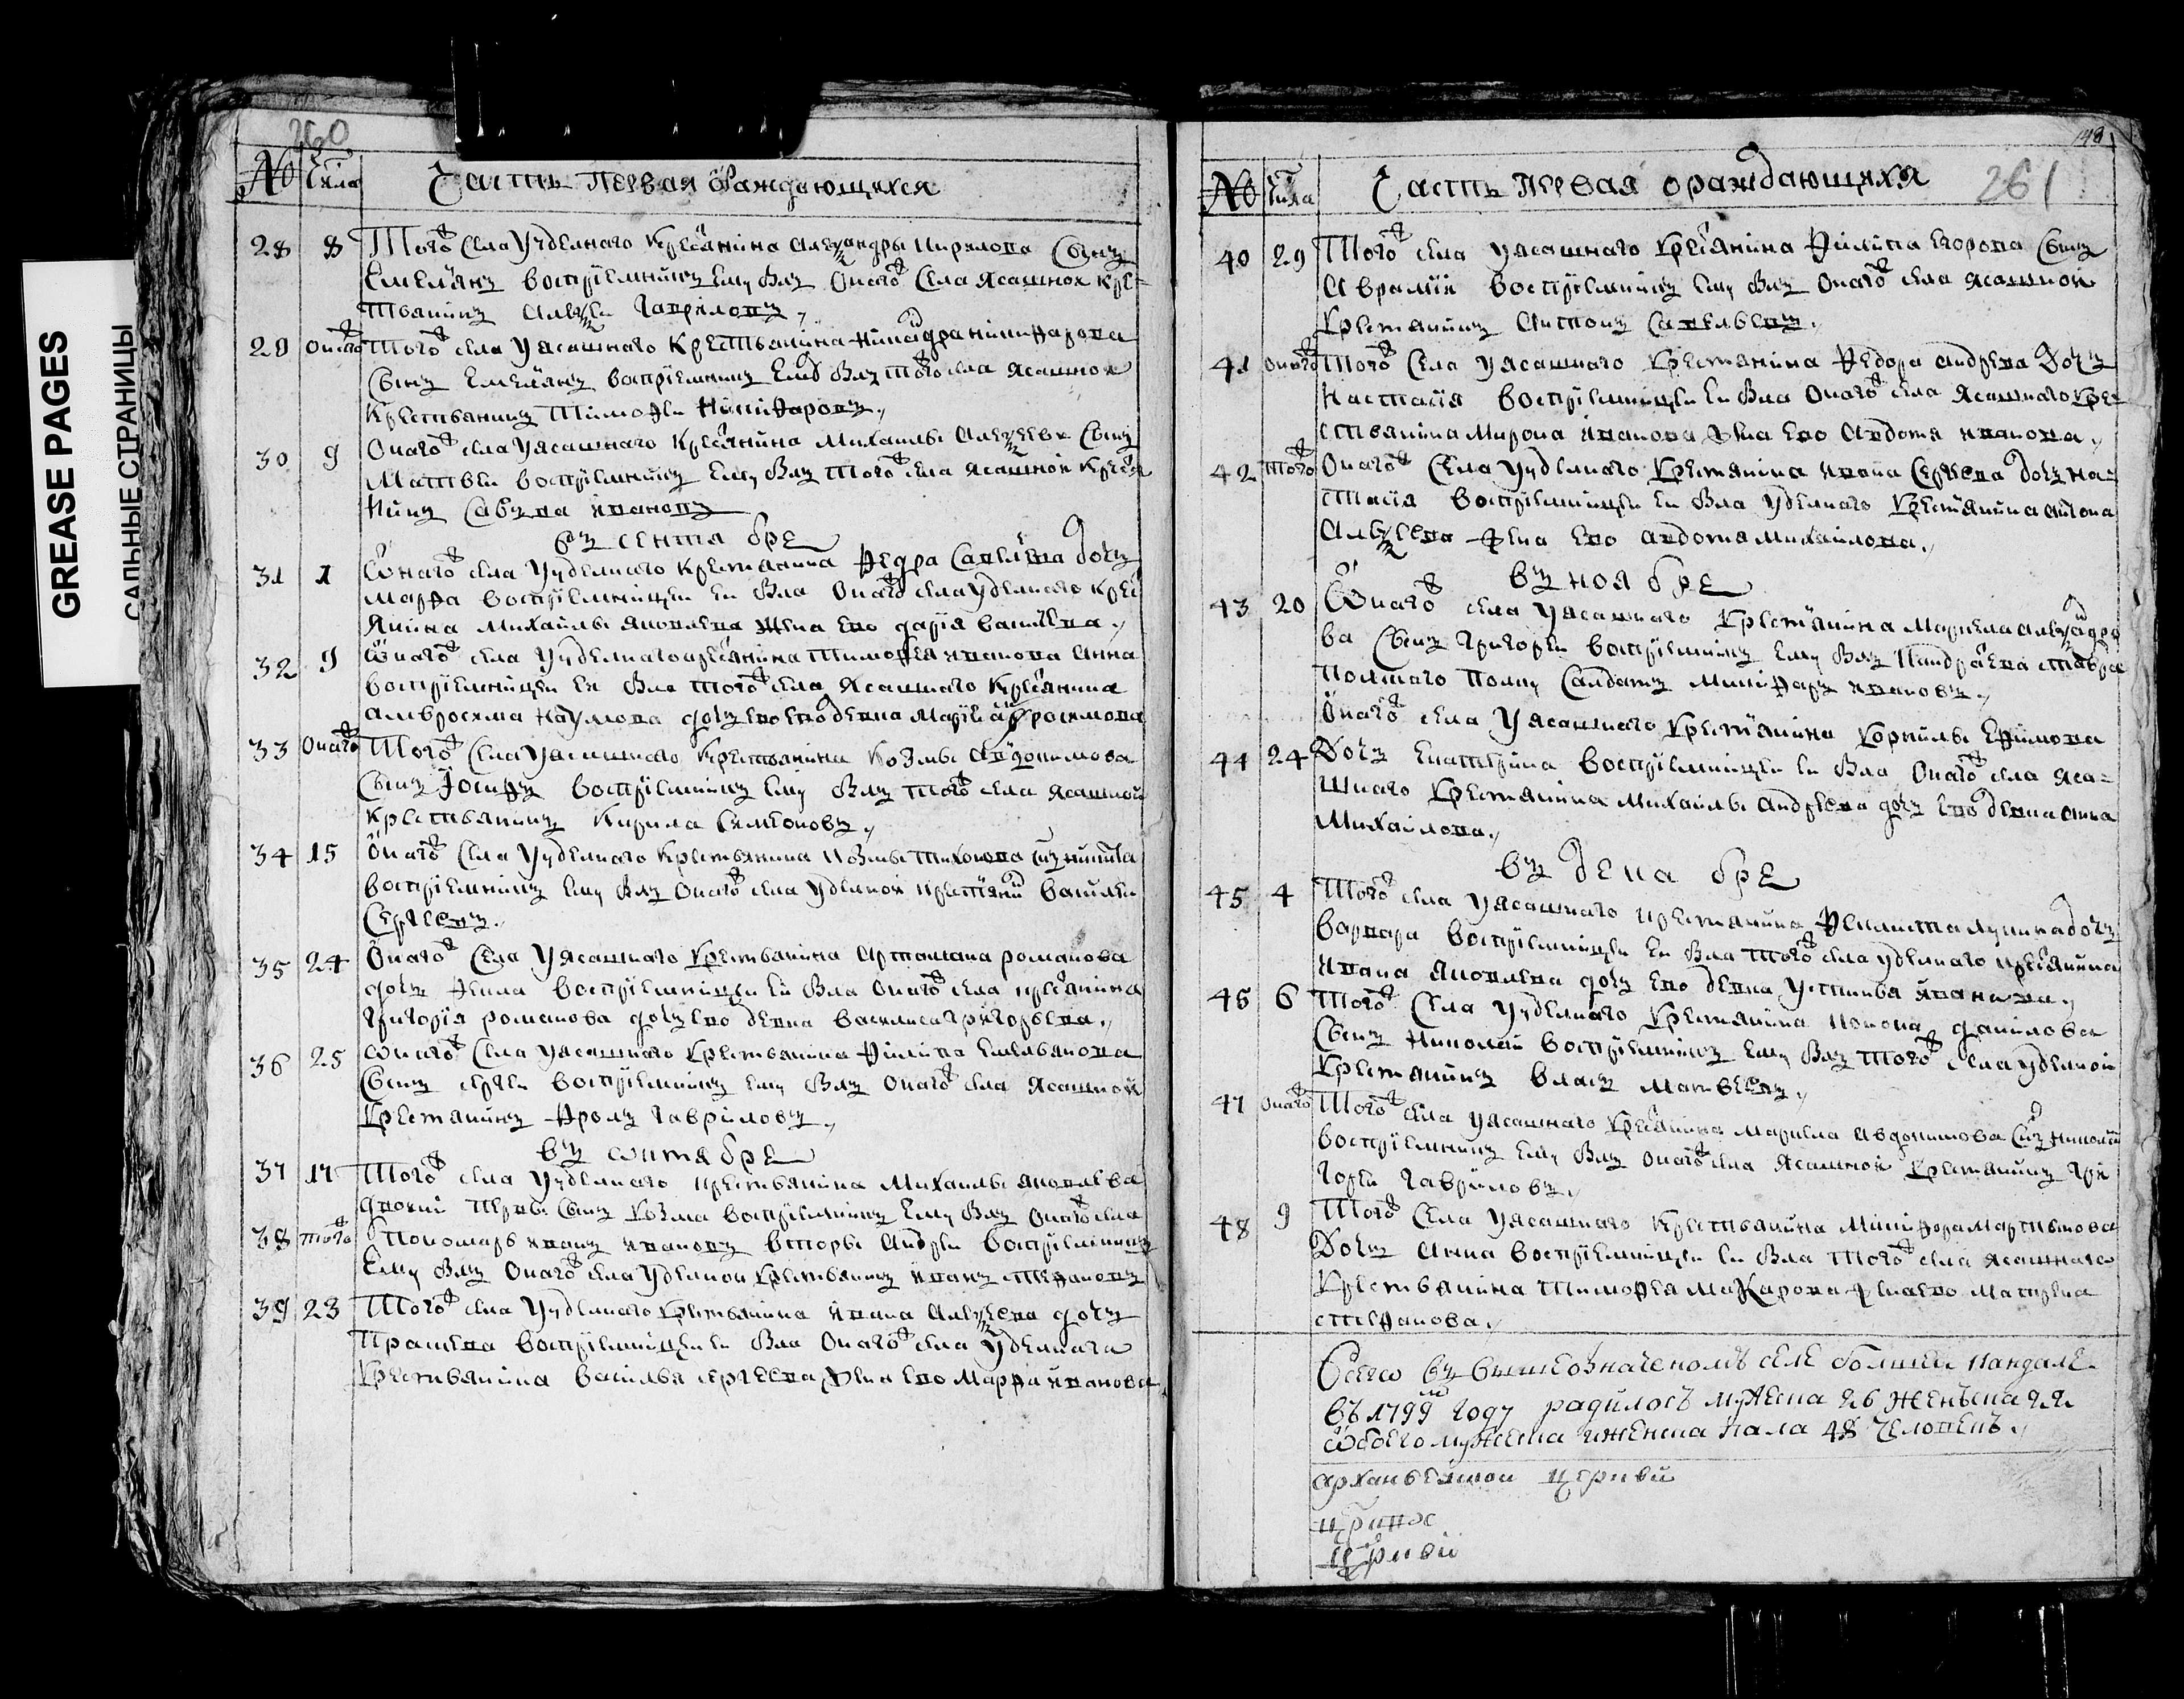 GREASE PAGES
САЛЬНЫЕ СТРАНИЦЫ
260
№ Числа Часть первая ораждающихся
28 8 Того села Уудельнаго крестьянина Александры Кирилова сынъ
Емельянъ восприемникъ ему былъ онаго села ясашной кре-
стьянинъ Алексей Гаврiловъ,
29 онаго Того села Уясашнаго крестьянина
сынъ Емельянъ восприемникъ ему былъ того села ясашной
крестьянинъ Тимофей Никифоровъ,
30 9 Онаго села Уясашнаго крестьянина Михайлы Алексеева сынъ
Матвей восприемникъ ему былъ того села ясашной крестья
нинъ Савелъ Ивановъ
въ сентябре
31 1 Онаго села Уудельнаго крестьянина Федора Савельева дочь
Марфа восприемницей ей была онаго села удельнаго крес
янина Михайлы Яковлева жена ево Дарiя Васильева,
32 9 Онаго села Уудельнаго крестьянина Тимофея Иванова Анна
восприемницей ей была того села ясашнаго крестьянина
Амвросима Наумова дочь ево девка Марiя Амбросимова
33 онаго Того села Уясашнаго крестьянина Козмы Авдокимова
сынъ Iосифъ восприемникъ ему былъ того села ясашной
крестьянинъ Кирила Семионовъ,
34 15 Онаго села Уудельнаго крестьянина Козмы Тихонова сынъ Никита
восприемникъ ему былъ онаго села удельной крестьянинъ Василей
Сергеевъ.
35 24 Онаго села Уясашнаго крестьянина Артамана Романова
дочь Фекла восприемницей ей была онаго села крестьянина
Григорiя Романова дочь ево девка Василиса Григорьева,
36 25 Онаго села Уясашнаго крестьянина Филипа Емельянова
сынъ Сергей восприемникъ ему былъ онаго села ясашной
крестьянинъ Фролъ Гавриловъ,
въ октябре
37 17 Того села Уудельнаго крестьянина Михайлы Яковлева
двойни первы сынъ Козма восприемникъ ему былъ онаго села
38 того пономарь Иванъ Ивановъ вторы Андрей восприемникъ
ему былъ онаго села удельной крестьянинъ Иванъ Степановъ
39 23 Того села Уудельнаго крестьянина Ивана Алексеева дочь
Прасковa восприемницей ей была онаго села удельнаго
крестьянина Василья Сергеева жена ево Марфа Иванова
148
261
№ Числа Часть первая ораждающихя
40 29 Того села Уясашнаго крестьянина Филипа Егорова сынъ
Аврамiй восприемникъ ему былъ онаго села ясашной
крестянинъ Антонъ Савельевъ,
41 онаго Того села Уясашнаго крестянина Федора Андреева дочь
Настасiя восприемницей ей была онаго села ясашнаго кре-
стьянина Мирона Иванова жена ево Авдотя Иванова,
42 того Онаго села Уудельнаго крестянина Ивана Сергеева дочь На-
стасiя восприемницей ей была удельнаго крестянина Антона
Алексеева жена ево Авдотя Михайлова,
въ ноябре
43 20 Онаго села Уясашнаго крестянина Маркела Александро
ва сынъ Григорей восприемникъ ему былъ
полку салдатъ Никифаръ Ивановъ,
44 24 Онаго села Уясашнаго крестянина Корнилы Ефимова
дочь Екатерина восприемницей ей была онаго села яса-
шнаго крестянина Михайлы Андреева дочь ево девка Анна
Михайлова,
въ декабре
45 4 Того села Уясашнаго крестянина дочь
Варвара восприемницей ей была того села удельнаго крестянина
Ивана Яковлева дочь ево девка Устинья Иванова,
46 6 Того села Уудельнаго крестянина Конона Данилова
сынъ Николай восприемникъ ему былъ того села удельной
крестянинъ Власъ Матвеевъ,
47 онаго Того села Уясашнаго крестянина Маркела Авдокимова сынъ Николай
восприемникъ ему былъ онаго села ясашной крестянинъ Гри
горей Гавриловъ,
48 9 Того села Уясашнаго крестьянина Никифора Мартынова
дочь Анна восприемницей ей была того села ясашнаго
крестьянина Тимофея Макарова жена ево Матрена
Степанова,
Всего въ вышеозначеномъ селе болшей Кандале
въ 1799м году радилосъ мужеска 26 женьска 22
обоего мужеска иженска пала 48 человекъ,
архангельской церкви
церкви